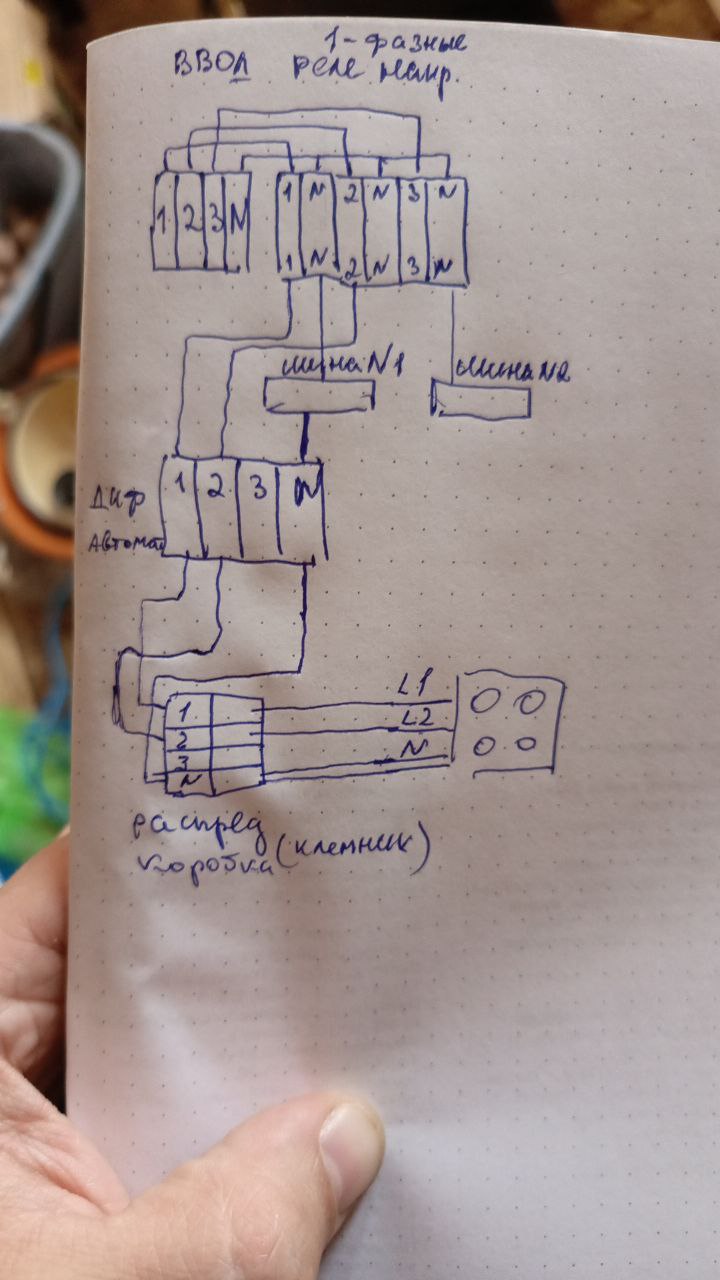 ВВОД
1-фазные
реле напр.
1 2 3 N
1 N 2 N 3 N
1 N 2 N 3 N
шина N1
шина N2
Диф
Автомат
1 2 3 N
1
2
3
N
L1
L2
N
распред
коробка (клемник)